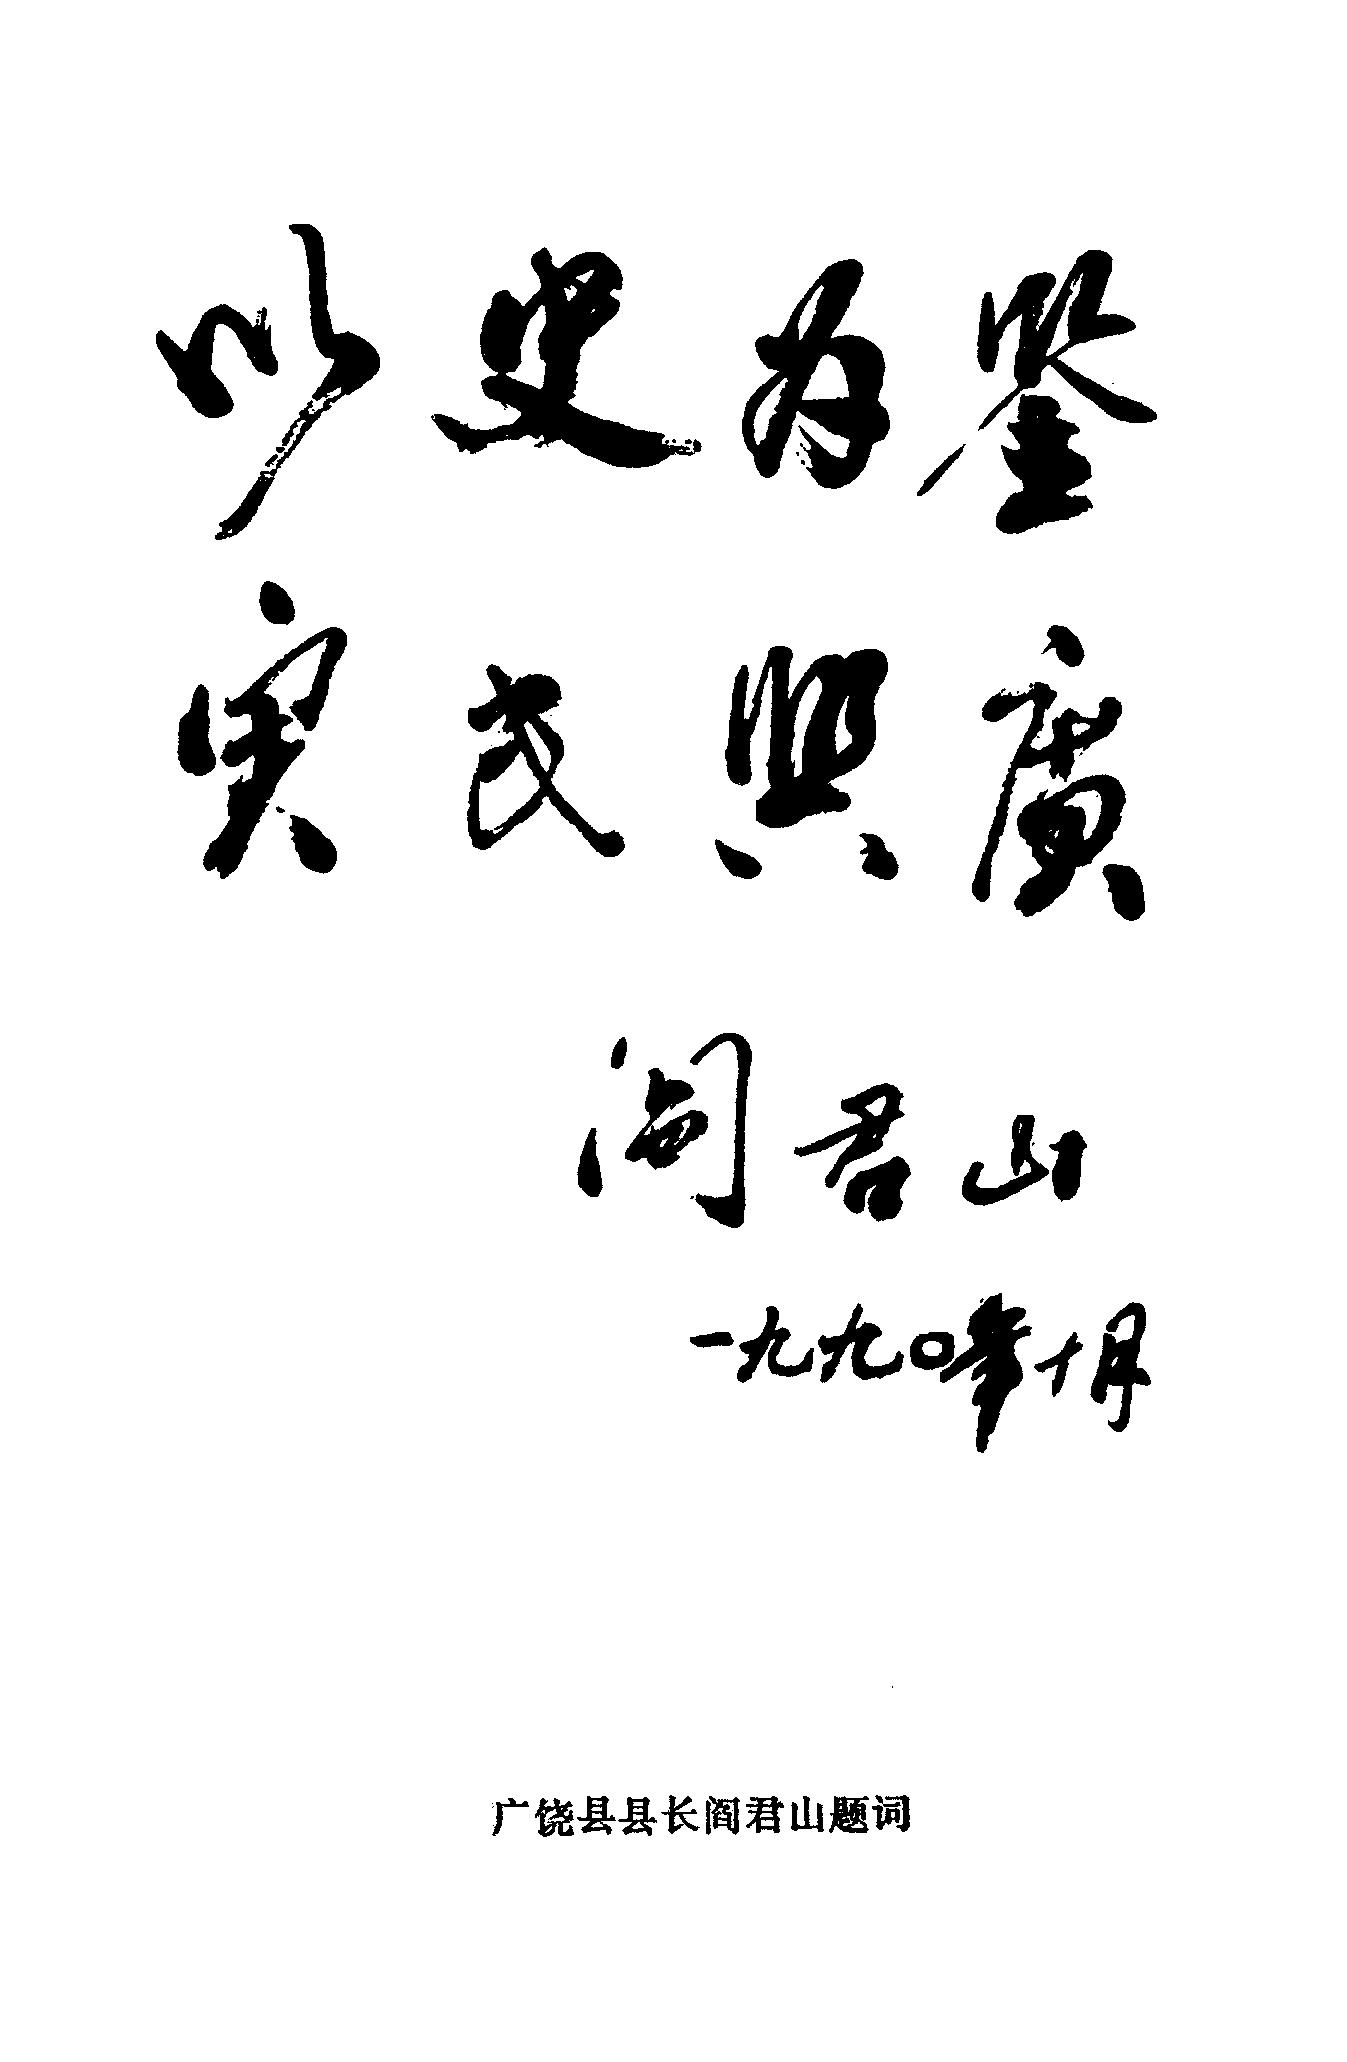 以史为鉴
实民興廣
阎君山
一九九〇年十月
广饶县县长阎君山题词